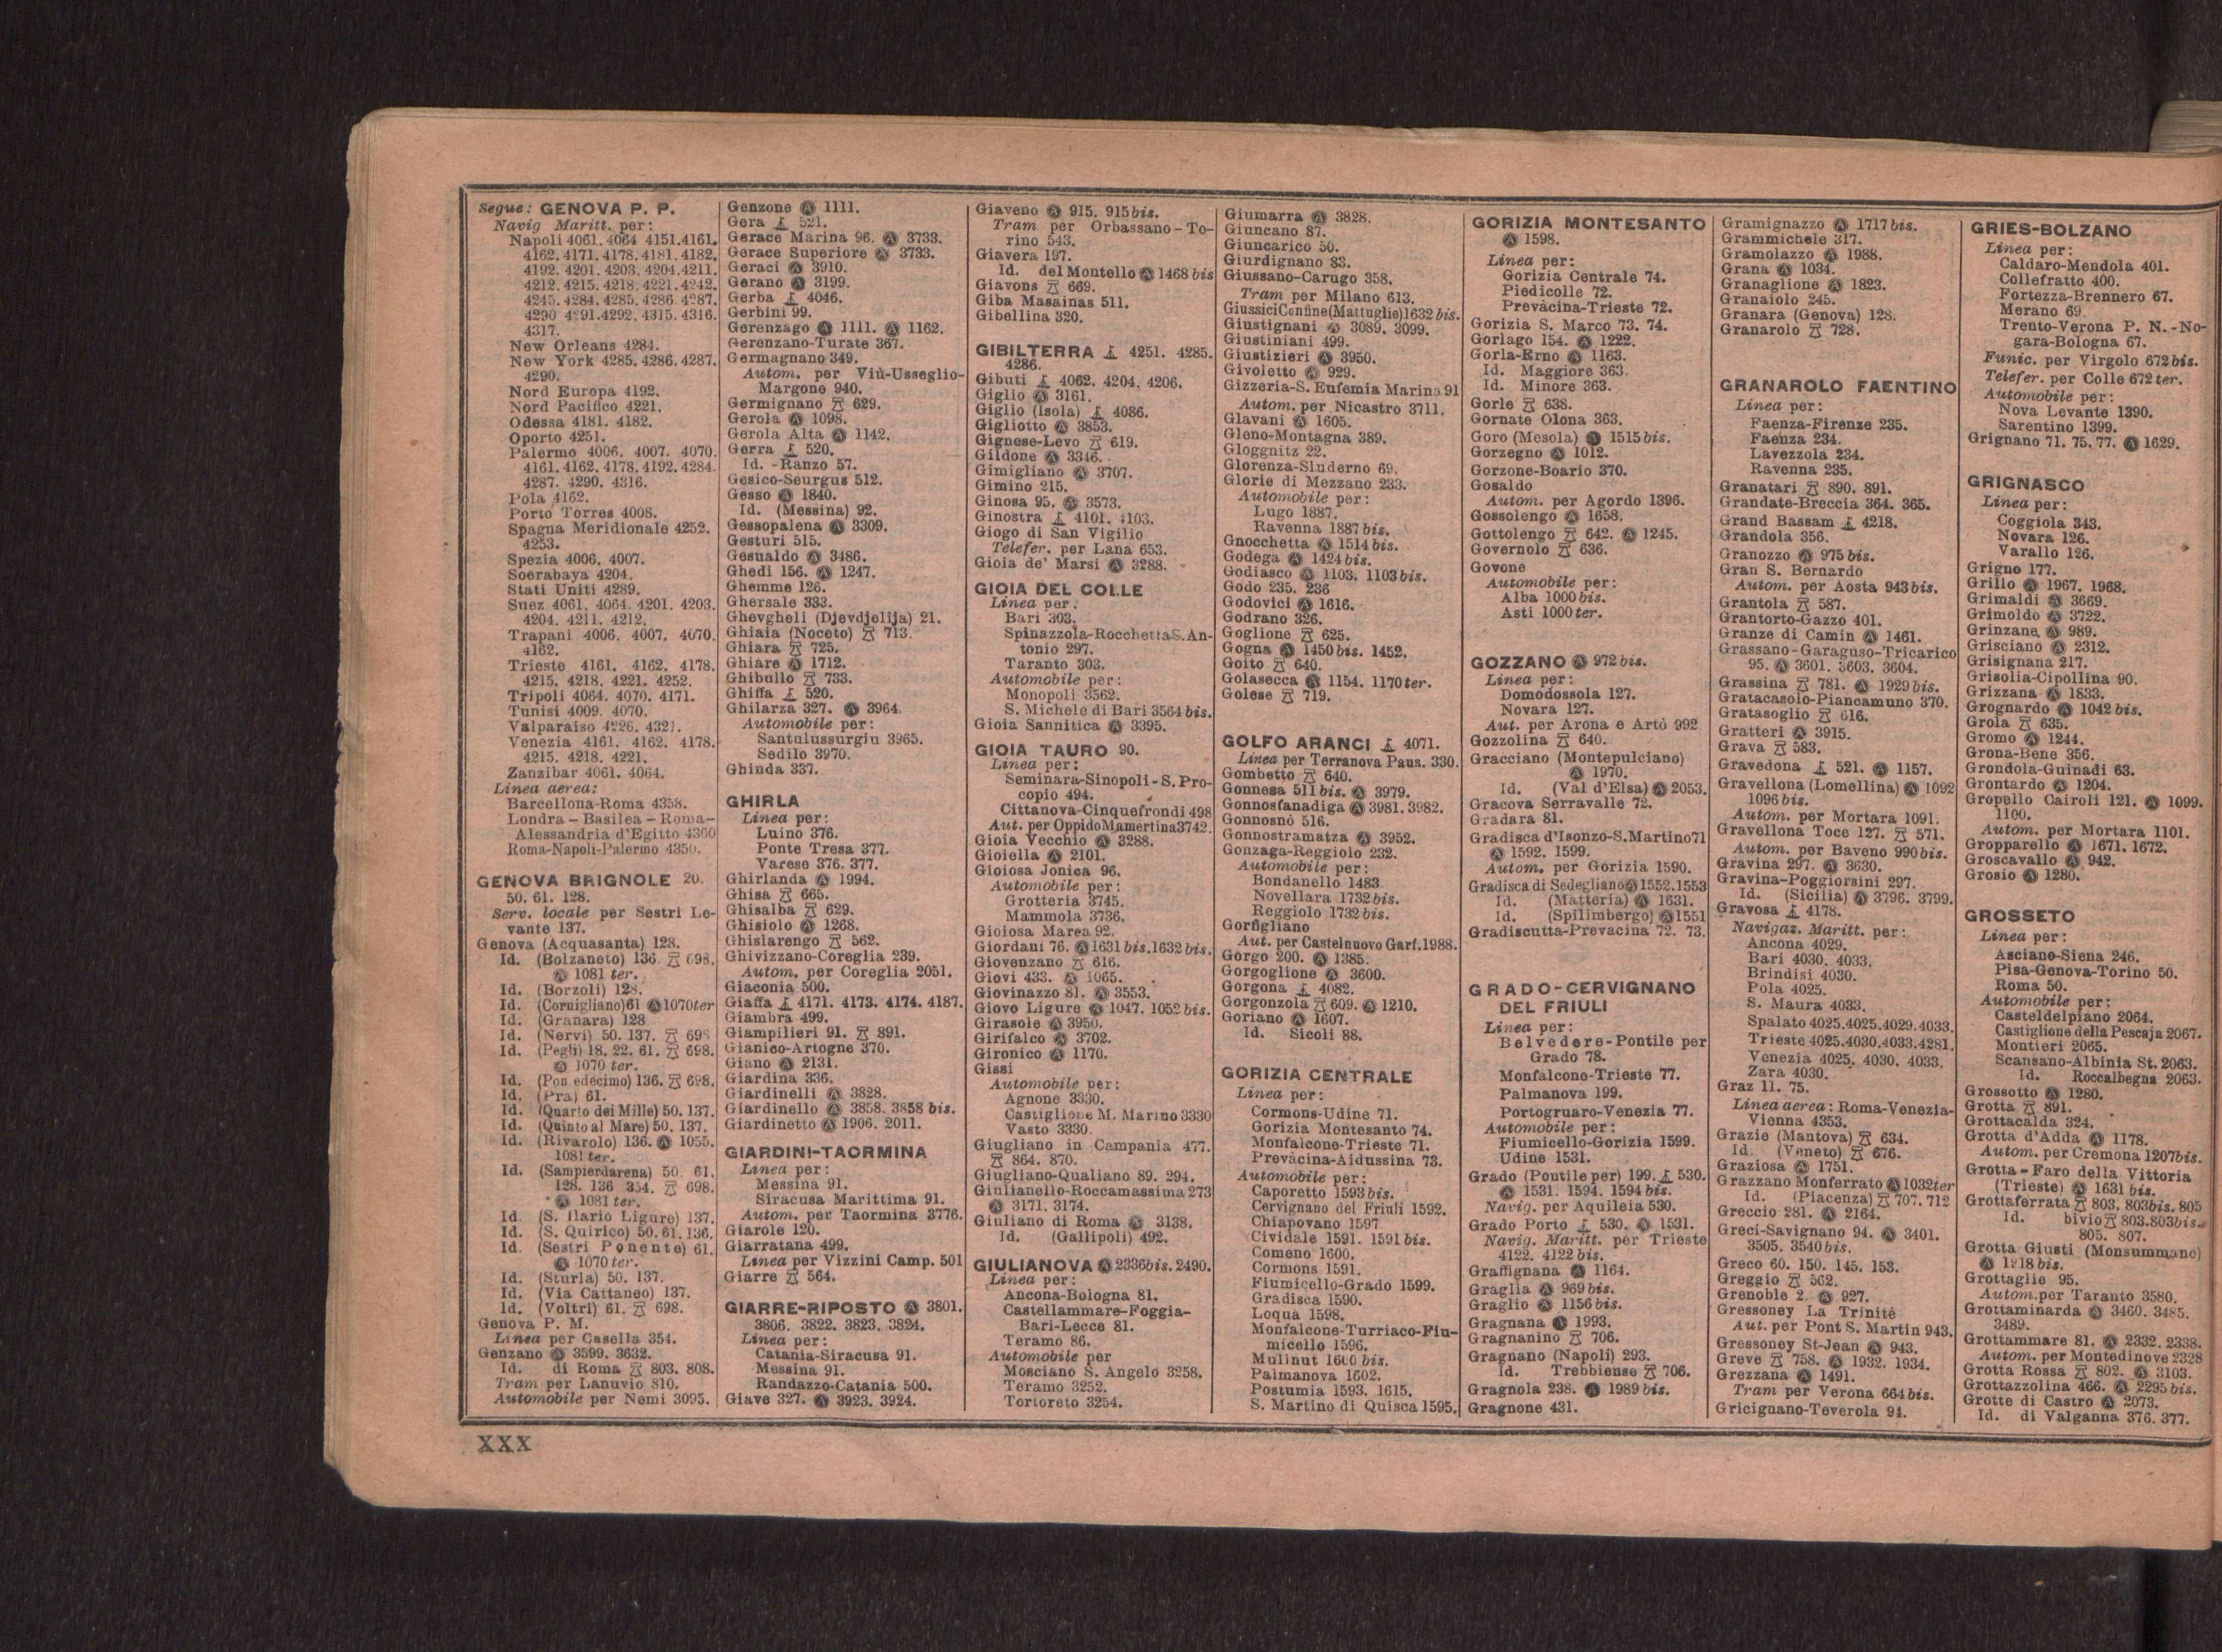 Segue: GENOVA P. P.
Navig Maritt. per:
Napoli 4061. 4064 4151. 4161.
4162. 4171. 4178. 4181. 4182.
4192. 4201. 4203. 4204. 4211.
4212. 4215. 4218. 4221. 4242.
4245. 4284. 4285. 4286. 4287.
4290 4291. 4292. 4315. 4316.
4317.
New Orleans 4284.
New York 4285. 4286. 4287.
4290.
Nord Europa 4192.
Nord Pacifico 4221.
Odessa 4181. 4182.
Oporto 4251.
Palermo 4006. 4007. 4070.
4161. 4162. 4178. 4192. 4284.
4287. 4290. 4316.
Pola 4162.
Porto Torres 4008.
Spagna Meridionale 4252.
4253.
Spezia 4006. 4007.
Soerabaya 4204.
Stati Uniti 4289.
Suez 4061. 4064. 4201. 4203.
4204. 4211. 4212.
Trapani 4006. 4007. 4070.
4162.
Trieste 4161. 4162. 4178.
4215. 4218. 4221. 4252.
Tripoli 4064. 4070. 4171.
Tunisi 4009. 4070.
Valparaiso 4226. 4321.
Venezia 4161. 4162. 4178.
4215. 4218. 4221.
Zanzibar 4061. 4064.
Linea aerea:
Barcellona-Roma 4358.
Londra - Basilea - Roma-
Alessandria d'Egitto 4360
Roma-Napoli-Palermo 4350.
GENOVA BRIGNOLE 20.
50. 61. 128.
Serv. locale per Sestri Le-
vante 137.
Genova (Acquasanta) 128.
Id. (Bolzaneto) 136. 698.
Ⓐ 1081 ter.
Id. (Borzoli) 128.
Id. (Cornigliano) 61 Ⓐ 1070 ter
Id. (Granara) 128
Id. (Nervi) 50. 137. 698
Id. (Pegli) 18. 22. 61. 698.
Ⓐ 1070 ter.
Id. (Pontedecimo) 136. 698.
Id. (Pra) 61.
Id. (Quarto dei Mille) 50. 137.
Id. (Quinto al Mare) 50. 137.
Id. (Rivarolo) 136. Ⓐ 1055.
1081 ter.
Id. (Sampierdarena) 50. 61.
128. 136 354. 698.
Ⓐ 1081 ter.
Id. (S. Ilario Ligure) 137.
Id. (S. Quirico) 50. 61. 136.
Id. (Sestri Ponente) 61.
Ⓐ 1070 ter.
Id. (Sturla) 50. 137.
Id. (Via Cattaneo) 137.
Id. (Voltri) 61. 698.
Genova P. M.
Linea per Casella 354.
Genzano Ⓐ 3599. 3632.
Id. di Roma 803. 808.
Tram per Lanuvio 810.
Automobile per Nemi 3095.
Genzone Ⓐ 1111.
Gera 521.
Gerace Marina 96. Ⓐ 3733.
Gerace Superiore Ⓐ 3733.
Geraci Ⓐ 3910.
Gerano Ⓐ 3199.
Gerba 4046.
Gerbini 99.
Gerenzago Ⓐ 1111. Ⓐ 1162.
Gerenzano-Turate 367.
Germagnano 349.
Autom. per Viù-Usseglio-
Margone 940.
Germignano 629.
Gerola Ⓐ 1098.
Gerola Alta Ⓐ 1142.
Gerra 520.
Id. - Ranzo 57.
Gesico-Seurgus 512.
Gesso Ⓐ 1840.
Id. (Messina) 92.
Gessopalena Ⓐ 3309.
Gesturi 515.
Gesualdo Ⓐ 3486.
Ghedi 156. Ⓐ 1247.
Ghemme 126.
Ghersale 333.
Ghevgheli (Djevdjelija) 21.
Ghiaia (Noceto) 713.
Ghiara 725.
Ghiare Ⓐ 1712.
Ghibullo 733.
Ghiffa 520.
Ghilarza 327. Ⓐ 3964.
Automobile per:
Santulussurgiu 3965.
Sedilo 3970.
Ghinda 337.
GHIRLA
Linea per:
Luino 376.
Ponte Tresa 377.
Varese 376. 377.
Ghirlanda Ⓐ 1994.
Ghisa 665.
Ghisalba 629.
Ghisiolo Ⓐ 1268.
Ghislarengo 562.
Ghivizzano-Coreglia 239.
Autom. per Coreglia 2051.
Giaconia 500.
Giaffa 4171. 4173. 4174. 4187.
Giambra 499.
Giampilieri 91. 891.
Gianico-Artogne 370.
Giano Ⓐ 2131.
Giardina 336.
Giardinelli Ⓐ 3828.
Giardinello Ⓐ 3858. 3858 bis.
Giardinetto Ⓐ 1906. 2011.
GIARDINI-TAORMINA
Linea per:
Messina 91.
Siracusa Marittima 91.
Autom. per Taormina 3776.
Giarole 120.
Giarratana 499.
Linea per Vizzini Camp. 501
Giarre 564.
GIARRE-RIPOSTO Ⓐ 3801.
3806. 3822. 3823. 3824.
Linea per:
Catania-Siracusa 91.
Messina 91.
Randazzo-Catania 500.
Giave 327. Ⓐ 3923. 3924.
Giaveno Ⓐ 915. 915 bis.
Tram per Orbassano-To-
rino 543.
Giavera 197.
Id. del Montello Ⓐ 1468 bis
Giavons 669.
Giba Masainas 511.
Gibellina 320.
GIBILTERRA 4251. 4285.
4286.
Gibuti 4062. 4204. 4206.
Giglio Ⓐ 3161.
Giglio (Isola) 4086.
Gigliotto Ⓐ 3853.
Gignese-Levo 619.
Gildone Ⓐ 3346.
Gimigliano Ⓐ 3707.
Gimino 215.
Ginosa 95. Ⓐ 3573.
Ginostra 4101. 4103.
Giogo di San Vigilio
Telefer. per Lana 653.
Gioia de' Marsi Ⓐ 3288.
GIOIA DEL COLLE
Linea per:
Bari 303.
Spinazzola-Rocchetta S. An-
tonio 297.
Taranto 303.
Automobile per:
Monopoli 3562.
S. Michele di Bari 3564 bis.
Gioia Sannitica Ⓐ 3395.
GIOIA TAURO 90.
Linea per:
Seminara-Sinopoli-S. Pro-
copio 494.
Cittanova-Cinquefrondi 498
Aut. per Oppido Mamertina 3742.
Gioia Vecchio Ⓐ 3288.
Gioiella Ⓐ 2101.
Gioiosa Jonica 96.
Automobile per:
Grotteria 3745.
Mammola 3736.
Gioiosa Marea 92.
Giordani 76. Ⓐ 1631 bis. 1632 bis.
Giovenzano 616.
Giovi 433. Ⓐ 1065.
Giovinazzo 81. Ⓐ 3553.
Giovo Ligure Ⓐ 1047. 1052 bis.
Girasole Ⓐ 3950.
Girifalco Ⓐ 3702.
Gironico Ⓐ 1170.
Gissi
Automobile per:
Agnone 3330.
Castiglione M. Marino 3330
Vasto 3330.
Giugliano in Campania 477.
864. 870.
Giugliano-Qualiano 89. 294.
Giulianello-Roccamassima 273
Ⓐ 3171. 3174.
Giuliano di Roma Ⓐ 3138.
Id. (Gallipoli) 492.
GIULIANOVA Ⓐ 2336 bis. 2490.
Linea per:
Ancona-Bologna 81.
Castellammare-Foggia-
Bari-Lecce 81.
Teramo 86.
Automobile per
Mosciano S. Angelo 3258.
Teramo 3252.
Tortoreto 3254.
Giumarra Ⓐ 3828.
Giuncano 87.
Giuncarico 50.
Giurdignano 83.
Giussano-Carugo 358.
Tram per Milano 613.
Giussici Confine (Mattuglie) 1632 bis.
Giustignani Ⓐ 3089. 3099.
Giustiniani 499.
Giustizieri Ⓐ 3950.
Givoletto Ⓐ 929.
Gizzeria-S. Eufemia Marina 91
Autom. per Nicastro 3711.
Glavani Ⓐ 1605.
Gleno-Montagna 389.
Gloggnitz 22.
Glorenza-Sluderno 69.
Glorie di Mezzano 233.
Automobile per:
Lugo 1887.
Ravenna 1887 bis.
Gnocchetta Ⓐ 1514 bis.
Godega Ⓐ 1424 bis.
Godiasco Ⓐ 1103. 1103 bis.
Godo 235. 236
Godovici Ⓐ 1616.
Godrano 326.
Goglione 625.
Gogna Ⓐ 1450 bis. 1452.
Goito 640.
Golasecca Ⓐ 1154. 1170 ter.
Golese 719.
GOLFO ARANCI 4071.
Linea per Terranova Paus. 330.
Gombetto 640.
Gonnesa 511 bis. Ⓐ 3979.
Gonnosfanadiga Ⓐ 3981. 3982.
Gonnosnò 516.
Gonnostramatza Ⓐ 3952.
Gonzaga-Reggiolo 232.
Automobile per:
Bondanello 1483.
Novellara 1732 bis.
Reggiolo 1732 bis.
Gorfigliano
Aut. per Castelnuovo Garf. 1988.
Gorgo 200. Ⓐ 1385.
Gorgoglione Ⓐ 3600.
Gorgona 4082.
Gorgonzola 609. Ⓐ 1210.
Goriano Ⓐ 1607.
Id. Sicoli 88.
GORIZIA CENTRALE
Linea per:
Cormons-Udine 71.
Gorizia Montesanto 74.
Monfalcone-Trieste 71.
Prevàcina-Aidussina 73.
Automobile per:
Caporetto 1593 bis.
Cervignano del Friuli 1592.
Chiapovano 1597
Cividale 1591. 1591 bis.
Comeno 1600.
Cormons 1591.
Fiumicello-Grado 1599.
Gradisca 1590.
Loqua 1598.
Monfalcone-Turriaco-Fiu-
micello 1596.
Mulinut 1600 bis.
Palmanova 1602.
Postumia 1593. 1615.
S. Martino di Quisca 1595.
GORIZIA MONTESANTO
Ⓐ 1598.
Linea per:
Gorizia Centrale 74.
Piedicolle 72.
Prevàcina-Trieste 72.
Gorizia S. Marco 73. 74.
Gorlago 154. Ⓐ 1222.
Gorla-Erno Ⓐ 1163.
Id. Maggiore 363.
Id. Minore 363.
Gorle 638.
Gornate Olona 363.
Goro (Mesola) Ⓐ 1515 bis.
Gorzegno Ⓐ 1012.
Gorzone-Boario 370.
Gosaldo
Autom. per Agordo 1396.
Gossolengo Ⓐ 1658.
Gottolengo 642. Ⓐ 1245.
Governolo 636.
Govone
Automobile per:
Alba 1000 bis.
Asti 1000 ter.
GOZZANO Ⓐ 972 bis.
Linea per:
Domodossola 127.
Novara 127.
Aut. per Arona e Artò 992
Gozzolina 640.
Gracciano (Montepulciano)
Ⓐ 1970.
Id. (Val d'Elsa) Ⓐ 2053.
Gracova Serravalle 72.
Gradara 81.
Gradisca d'Isonzo-S. Martino 71
Ⓐ 1592. 1599.
Autom. per Gorizia 1590.
Gradisca di Sedegliano Ⓐ 1552. 1553
Id. (Matteria) Ⓐ 1631.
Id. (Spilimbergo) Ⓐ 1551
Gradiscutta-Prevacina 72. 73.
GRADO-CERVIGNANO
DEL FRIULI
Linea per:
Belvedere-Pontile per
Grado 78.
Monfalcone-Trieste 77.
Palmanova 199.
Portogruaro-Venezia 77.
Automobile per:
Fiumicello-Gorizia 1599.
Udine 1531.
Grado (Pontile per) 199. 530.
Ⓐ 1531. 1594. 1594 bis.
Navig. per Aquileia 530.
Grado Porto 530. Ⓐ 1531.
Navig. Maritt. per Trieste
4122. 4122 bis.
Graffignana Ⓐ 1164.
Graglia Ⓐ 969 bis.
Graglio Ⓐ 1156 bis.
Gragnana Ⓐ 1993.
Gragnanino 706.
Gragnano (Napoli) 293.
Id. Trebbiense 706.
Gragnola 238. Ⓐ 1989 bis.
Gragnone 431.
Gramignazzo Ⓐ 1717 bis.
Grammichele 317.
Gramolazzo Ⓐ 1988.
Grana Ⓐ 1034.
Granaglione Ⓐ 1823.
Granaiolo 245.
Granara (Genova) 128.
Granarolo 728.
GRANAROLO FAENTINO
Linea per:
Faenza-Firenze 235.
Faenza 234.
Lavezzola 234.
Ravenna 235.
Granatari 890. 891.
Grandate-Breccia 364. 365.
Grand Bassam 4218.
Grandola 356.
Granozzo Ⓐ 975 bis.
Gran S. Bernardo
Autom. per Aosta 943 bis.
Grantola 587.
Grantorto-Gazzo 401.
Granze di Camin Ⓐ 1461.
Grassano-Garaguso-Tricarico
95. Ⓐ 3601. 3603. 3604.
Grassina 781. Ⓐ 1929 bis.
Gratacasolo-Piancamuno 370.
Gratasoglio 616.
Gratteri Ⓐ 3915.
Grava 583.
Gravedona 521. Ⓐ 1157.
Gravellona (Lomellina) Ⓐ 1092
1096 bis.
Autom. per Mortara 1091.
Gravellona Toce 127. 571.
Autom. per Baveno 990 bis.
Gravina 297. Ⓐ 3630.
Gravina-Poggiorsini 297.
Id. (Sicilia) Ⓐ 3796. 3799.
Gravosa 4178.
Navigaz. Maritt. per:
Ancona 4029.
Bari 4030. 4033.
Brindisi 4030.
Pola 4025.
S. Maura 4033.
Spalato 4025. 4025. 4029. 4033.
Trieste 4025. 4030. 4033. 4281.
Venezia 4025. 4030. 4033.
Zara 4030.
Graz 11. 75.
Linea aerea: Roma-Venezia-
Vienna 4353.
Grazie (Mantova) 634.
Id. (Veneto) 676.
Graziosa Ⓐ 1751.
Grazzano Monferrato Ⓐ 1032 ter
Id. (Piacenza) 707. 712
Greccio 281. Ⓐ 2164.
Greci-Savignano 94. Ⓐ 3401.
3505. 3540 bis.
Greco 60. 150. 145. 153.
Greggio 562.
Grenoble 2. Ⓐ 927.
Gressoney La Trinité
Aut. per Pont S. Martin 943.
Gressoney St-Jean Ⓐ 943.
Greve 758. Ⓐ 1932. 1934.
Grezzana Ⓐ 1491.
Tram per Verona 664 bis.
Gricignano-Teverola 94.
GRIES-BOLZANO
Linea per:
Caldaro-Mendola 401.
Collefratto 400.
Fortezza-Brennero 67.
Merano 69.
Trento-Verona P. N.-No-
gara-Bologna 67.
Funic. per Virgolo 672 bis.
Telefer. per Colle 672 ter.
Automobile per:
Nova Levante 1390.
Sarentino 1399.
Grignano 71. 75. 77. Ⓐ 1629.
GRIGNASCO
Linea per:
Coggiola 343.
Novara 126.
Varallo 126.
Grigno 177.
Grillo Ⓐ 1967. 1968.
Grimaldi Ⓐ 3669.
Grimoldo Ⓐ 3722.
Grinzane Ⓐ 989.
Grisciano Ⓐ 2312.
Grisignana 217.
Grisolia-Cipollina 90.
Grizzana Ⓐ 1833.
Grognardo Ⓐ 1042 bis.
Grola 635.
Gromo Ⓐ 1244.
Grona-Bene 356.
Grondola-Guinadi 63.
Grontardo Ⓐ 1204.
Gropello Cairoli 121. Ⓐ 1099.
1100.
Autom. per Mortara 1101.
Gropparello Ⓐ 1671. 1672.
Groscavallo Ⓐ 942.
Grosio Ⓐ 1280.
GROSSETO
Linea per:
Asciano-Siena 246.
Pisa-Genova-Torino 50.
Roma 50.
Automobile per:
Casteldelpiano 2064.
Castiglione della Pescaja 2067.
Montieri 2065.
Scansano-Albinia St. 2063.
Id. Roccalbegna 2063.
Grossotto Ⓐ 1280.
Grotta 891.
Grottacalda 324.
Grotta d'Adda Ⓐ 1178.
Autom. per Cremona 1207 bis.
Grotta-Faro della Vittoria
(Trieste) Ⓐ 1631 bis.
Grottaferrata 803. 803 bis. 805
Id. bivio 803. 803 bis.
805. 807.
Grotta Giusti (Monsummano)
Ⓐ 1918 bis.
Grottaglie 95.
Autom. per Taranto 3580.
Grottaminarda Ⓐ 3460. 3485.
3489.
Grottammare 81. Ⓐ 2332. 2338.
Autom. per Montedinove 2328
Grotta Rossa 802. Ⓐ 3103.
Grottazzolina 466. Ⓐ 2295 bis.
Grotte di Castro Ⓐ 2073.
Id. di Valganna 376. 377.
XXX